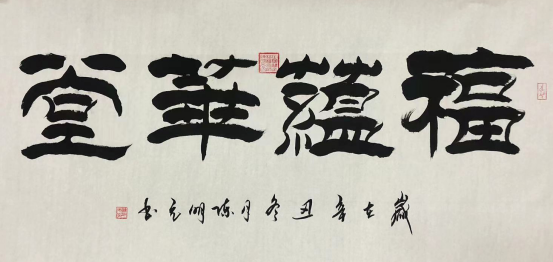 福蘊華堂
歲在辛丑冬月陳明元書